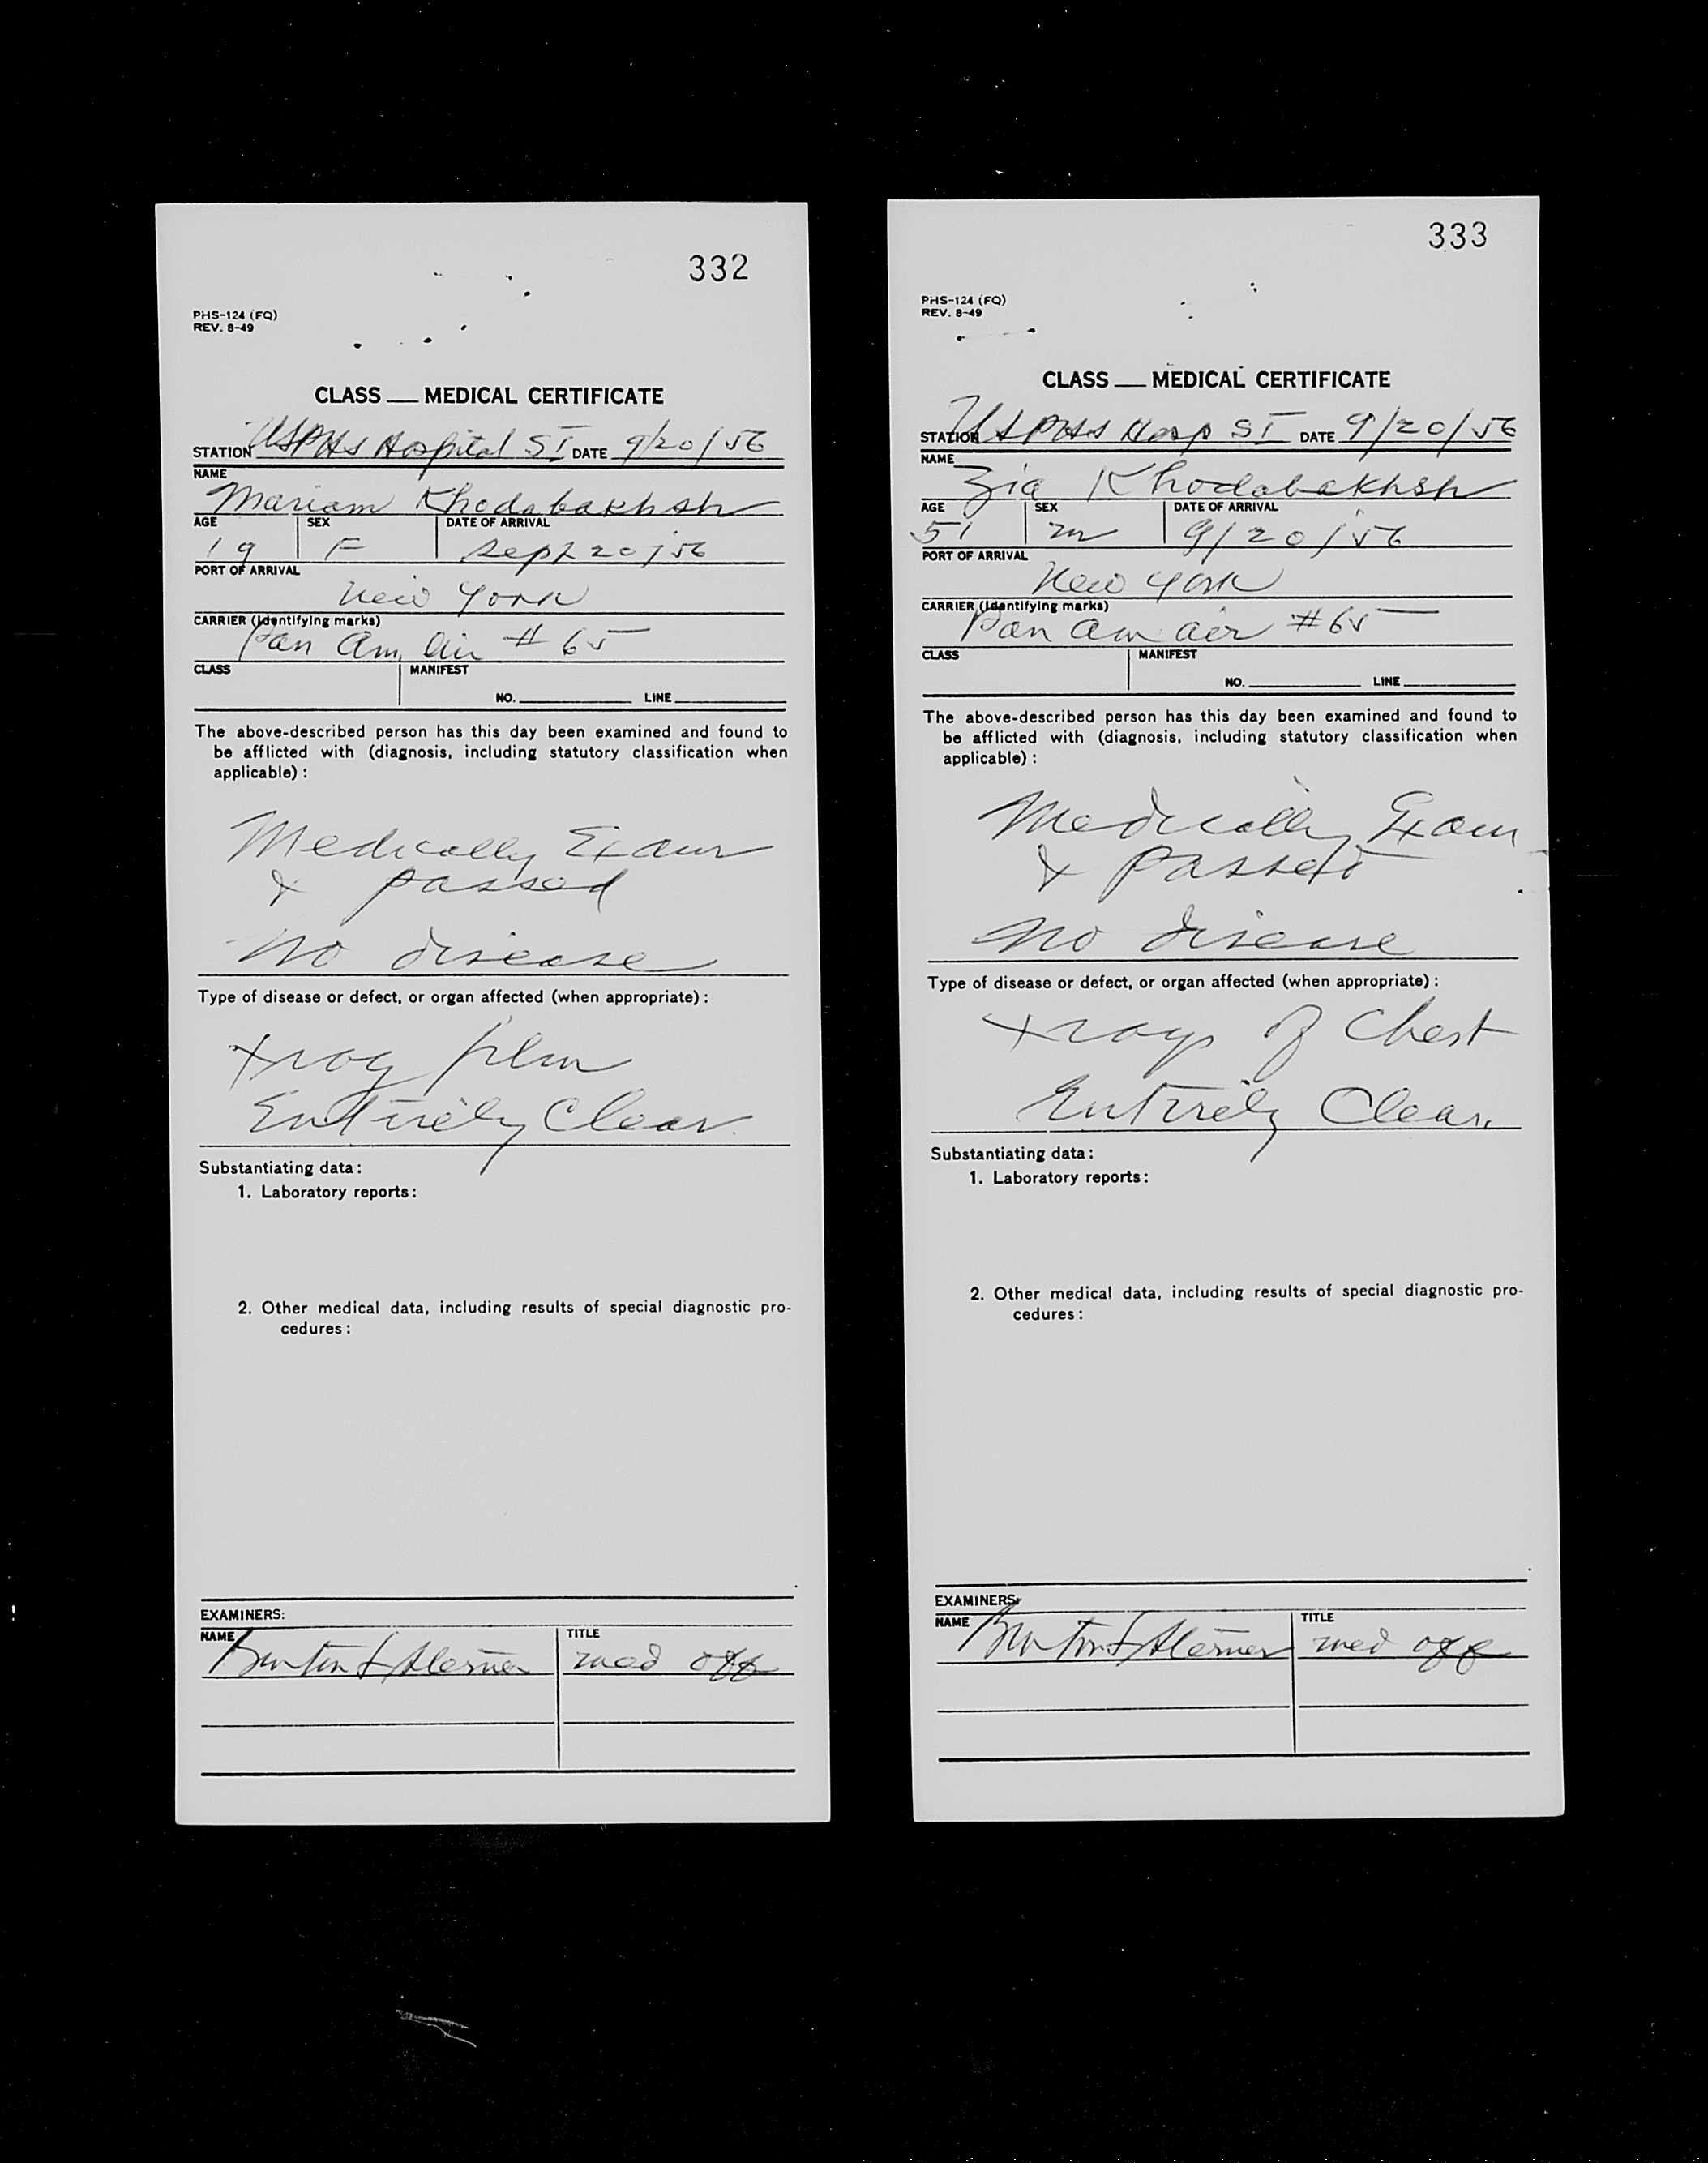 332
PHS-124 (FQ)
REV. 8-49
CLASS __ MEDICAL CERTIFICATE
STATION USPHS Hospital SI DATE 9/20/56
NAME
Mariam Khodabakhsh
AGE SEX DATE OF ARRIVAL
19 F Sept 20/56
PORT OF ARRIVAL
New York
CARRIER (Identifying marks)
Pan Am. Air # 65
CLASS MANIFEST
NO. LINE
The above-described person has this day been examined and found to
be afflicted with (diagnosis, including statutory classification when
applicable) :
Medically Exam
& passed
No disease
Type of disease or defect, or organ affected (when appropriate) :
Xray film
Entirely Clear.
Substantiating data :
1. Laboratory reports :
2. Other medical data, including results of special diagnostic pro-
cedures :
EXAMINERS:
NAME TITLE
med off
333
PHS-124 (FQ)
REV. 8-49
CLASS __ MEDICAL CERTIFICATE
STATION USPHS Hosp SI DATE 9/20/56
NAME
Zia Khodabakhsh
AGE SEX DATE OF ARRIVAL
51 m 9/20/56
PORT OF ARRIVAL
New York
CARRIER (Identifying marks)
Pan Am air #65
CLASS MANIFEST
NO. LINE
The above-described person has this day been examined and found to
be afflicted with (diagnosis, including statutory classification when
applicable) :
Medically Exam
& passed
No disease
Type of disease or defect, or organ affected (when appropriate) :
Xrays of Chest
Entirely Clear.
Substantiating data :
1. Laboratory reports :
2. Other medical data, including results of special diagnostic pro-
cedures :
EXAMINERS:
NAME TITLE
med off